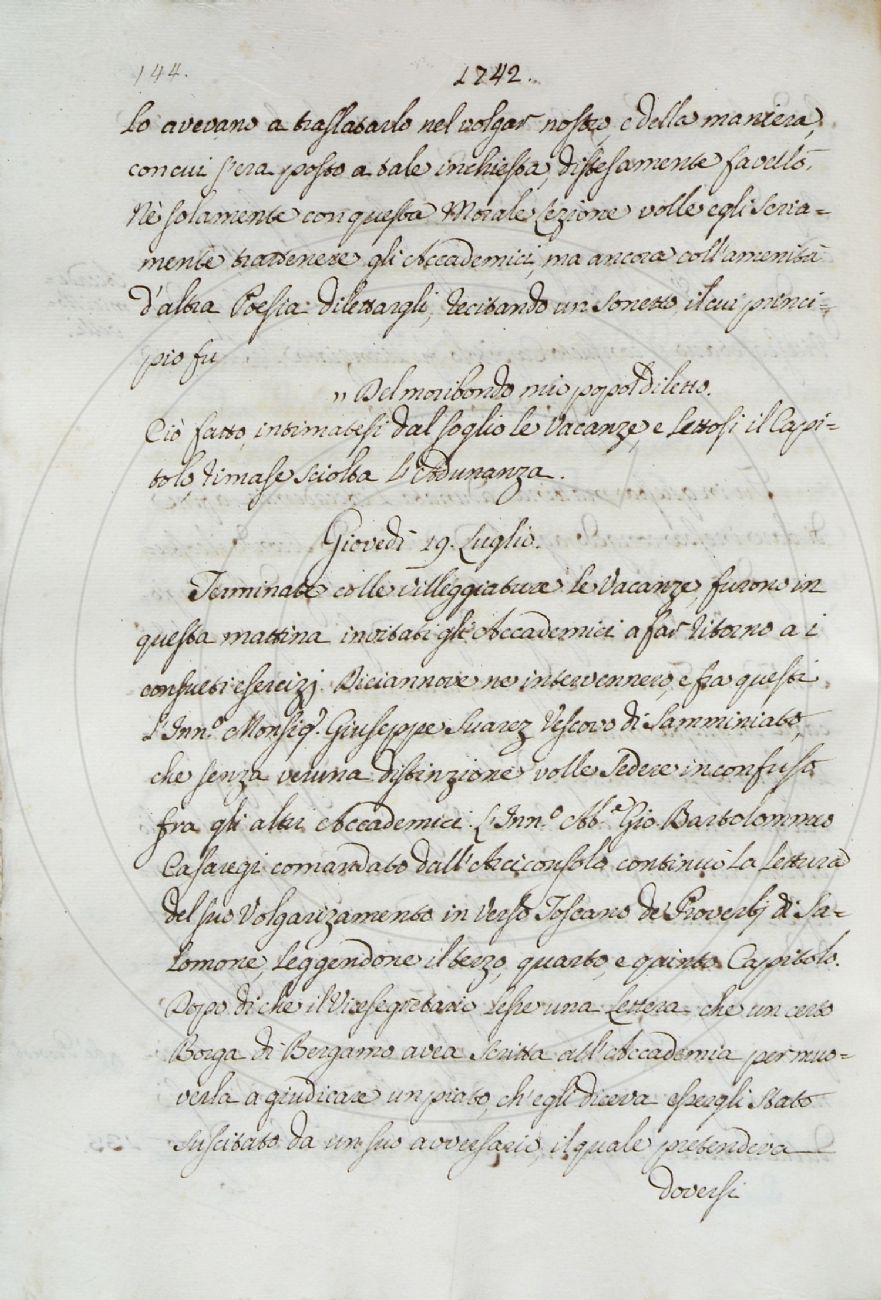 144.
1742.
lo avevano a traslatarlo nel volgar nostro, e della maniera,
con cui s'era posto a tale inchiesta, distesamente favellò.
Nè solamente con questa Morale Lezione volle egli seria=
mente trattenere gli Accademici, ma ancora coll'amenità
d'altra Poesia dilettargli, recitando un Sonetto, il cui princi=
pio fu
„ Del moribondo mio popol diletto.
Ciò fatto, intimatesi dal soglio le Vacanze, e lettosi il Capi=
tolo, rimase sciolta l'Adunanza.
Giovedì 19. Luglio.
Terminate colle villeggiature le Vacanze, furono in
questa mattina invitati gli Accademici a far ritorno a i
consueti esercizj. Diciannove ne intervennero, e fra questi
l'Inn.º Monsig.r Giuseppe Suarez Vescovo di Samminiato,
che senza veruna distinzione volle sedere inconfuso
fra gli altri Accademici. L'Inn.º Ab.e Gio Bartolommeo
Casaregi comandato dall'Arciconsolo continuò la Lettura
del suo Volgarizamento in Verso Toscano de' Proverbj di Sa=
lomone, leggendone il terzo, quarto, e quinto Capitolo.
Dopo di che il Vicesegretario lesse una Lettera, che un certo
Borga di Bergamo avea scritta all'Accademia per muo=
verla a giudicare un piato, ch'egli diceva essergli stato
suscitato da un suo avversario, il quale pretendeva
doversi